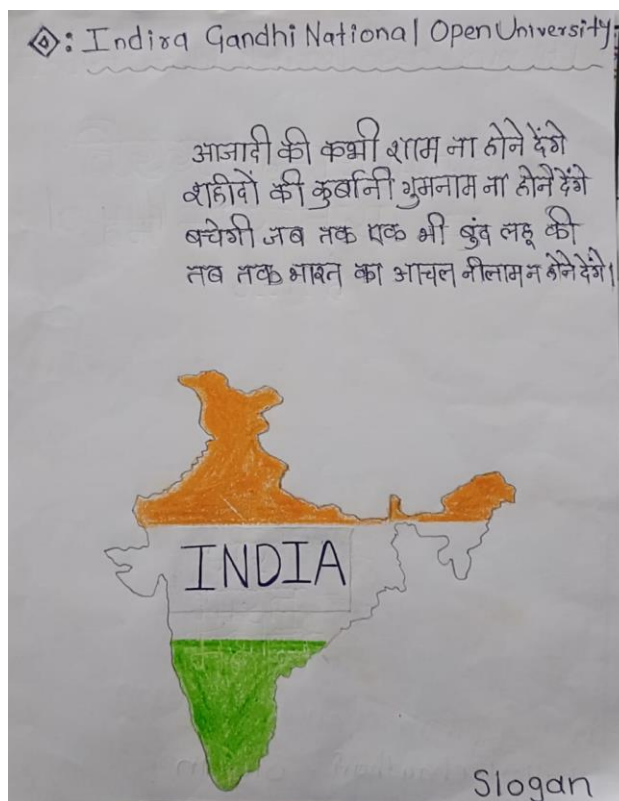 : Indira Gandhi National Open University
आजादी की कभी शाम ना होने देंगे
शहीदों की कुर्बानी गुमनाम ना होने देंगे
बचेगी जब तक एक भी बुंद लहू की
तब तक भारत का आचल नीलाम न होने देंगे।
INDIA
Slogan